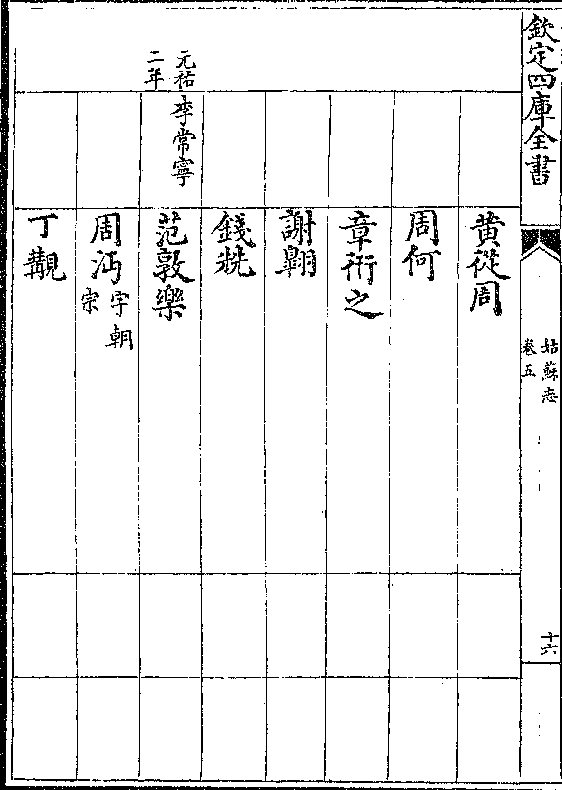 欽定四庫全書
姑蘇志
卷五
十六
黄從周
周何
章術之
謝翺
錢兟
元祐
二年
李常寧
范敦樂
周沔字朝
宗
丁覯